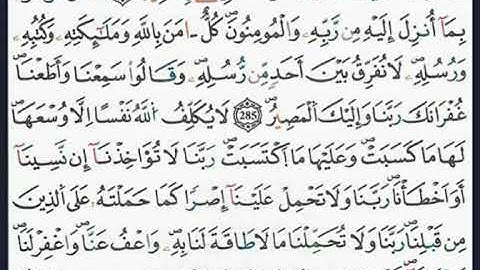 بِمَآ أُنزِلَ إِلَيْهِ مِن رَّبِّهِۦ وَالْمُومِنُونَۖ كُلٌّ ـامَنَ بِاللَّهِ وَمَلَٰٓئِكَتِهِۦ وَكُتُبِهِۦ
وَرُسُلِهِۦۖ لَا نُفَرِّقُ بَيْنَ أَحَدٍ مِّن رُّسُلِهِۦۖ وَقَالُوا سَمِعْنَا وَأَطَعْنَاۖ
غُفْرَانَكَ رَبَّنَا وَإِلَيْكَ الْمَصِيرُۖ 285 لَا يُكَلِّفُ اللَّهُ نَفْسًا اِلَّا وُسْعَهَاۖ
لَهَا مَا كَسَبَتْ وَعَلَيْهَا مَا اَكْتَسَبَتْۖ رَبَّنَا لَا تُوَاخِذْنَآ إِن نَّسِينَآ
أَوَ اَخْطَأْنَاۖ رَبَّنَا وَلَا تَحْمِلْ عَلَيْنَآ إِصْرًا كَمَا حَمَلْتَهُۥ عَلَى الَّذِينَ
مِن قَبْلِنَاۖ رَبَّنَا وَلَا تُحَمِّلْنَا مَا لَا طَاقَةَ لَنَا بِهِۦۖ وَاعْفُ عَنَّاۖ وَاغْفِرْ لَنَاۖ